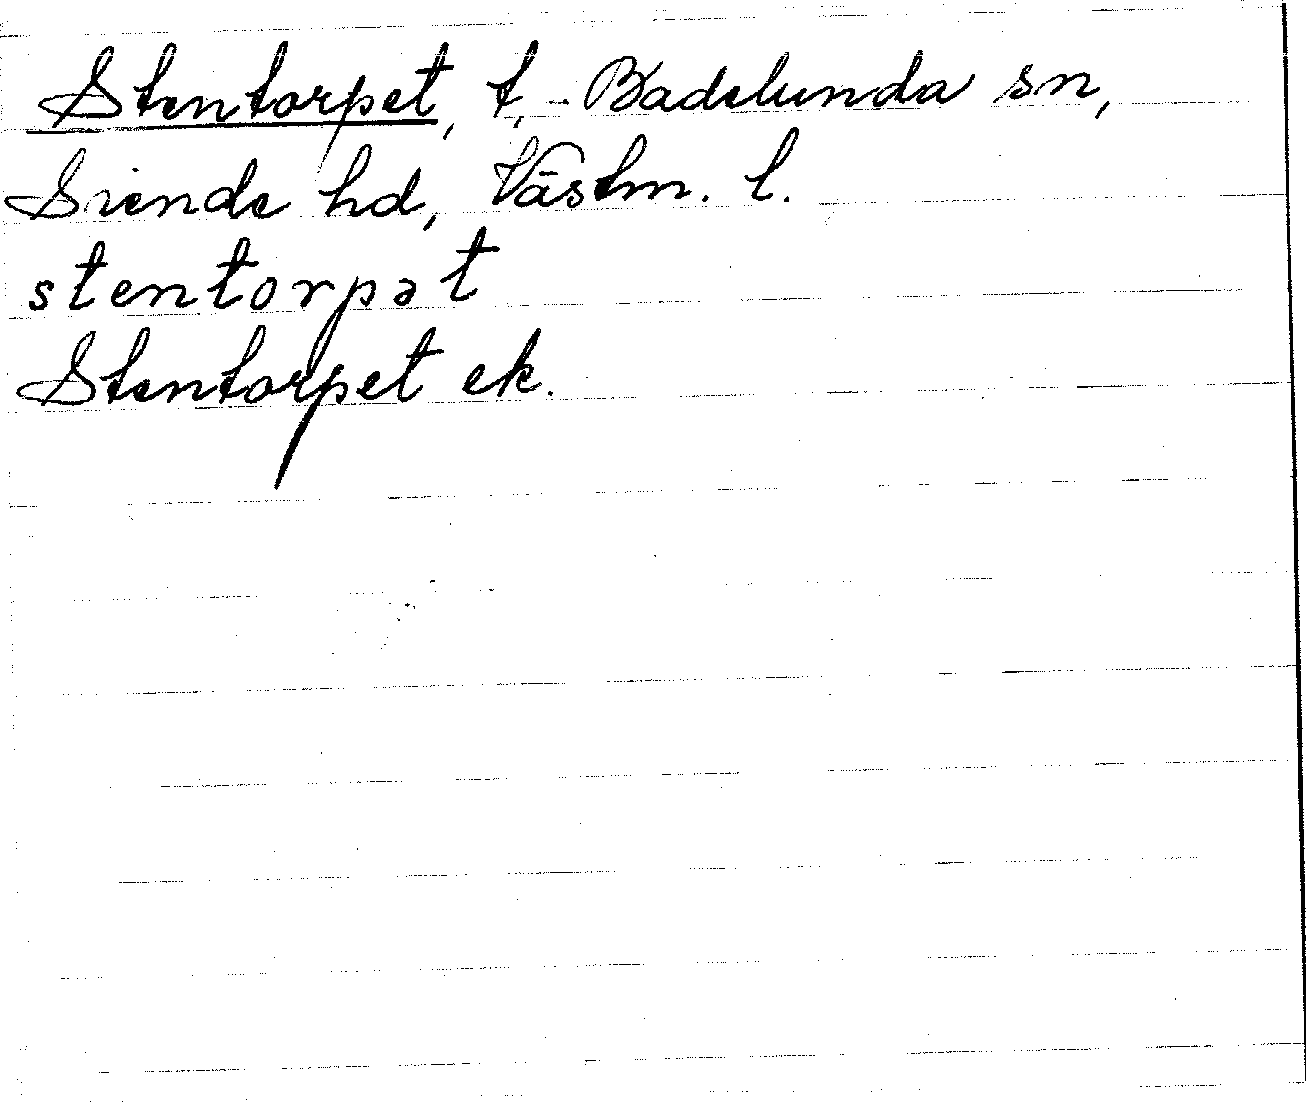 Stentorpet, t, Badelunda sn,
Siende hd, Västm. l.
stentorpət
Stentorpet ek.